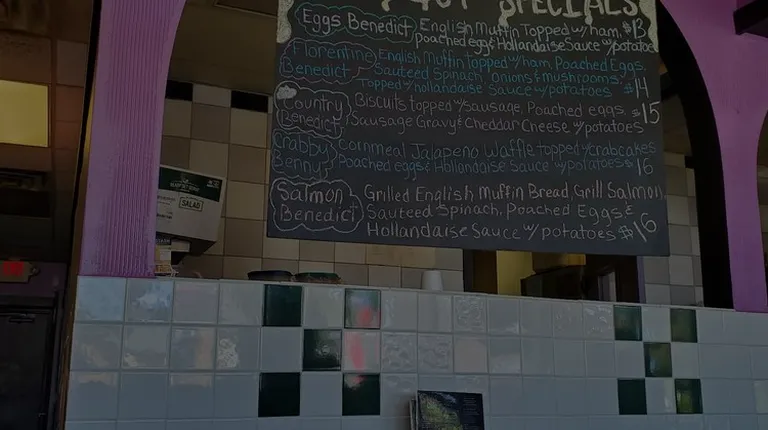 SPECIALS
Eggs Benedict English Muffin Topped w/ ham, $13
poached egg & Hollandaise Sauce w/ potatoes
Florentine English Muffin Topped w/ ham, Poached Eggs,
Benedict Sauteed Spinach, onions & mushrooms
Topped w/ hollandaise Sauce w/ potatoes $14
Country Biscuits topped w/ sausage, Poached eggs, $15
Benedict Sausage Gravy & Cheddar Cheese w/ potatoes
Crabby Cornmeal Jalapeno Waffle topped w/ crabcakes
Benny Poached eggs & Hollandaise Sauce w/ potatoes $16
Salmon Grilled English Muffin Bread, Grill Salmon,
Benedict Sauteed Spinach, Poached Eggs &
Hollandaise Sauce w/ potatoes $16
SALAD